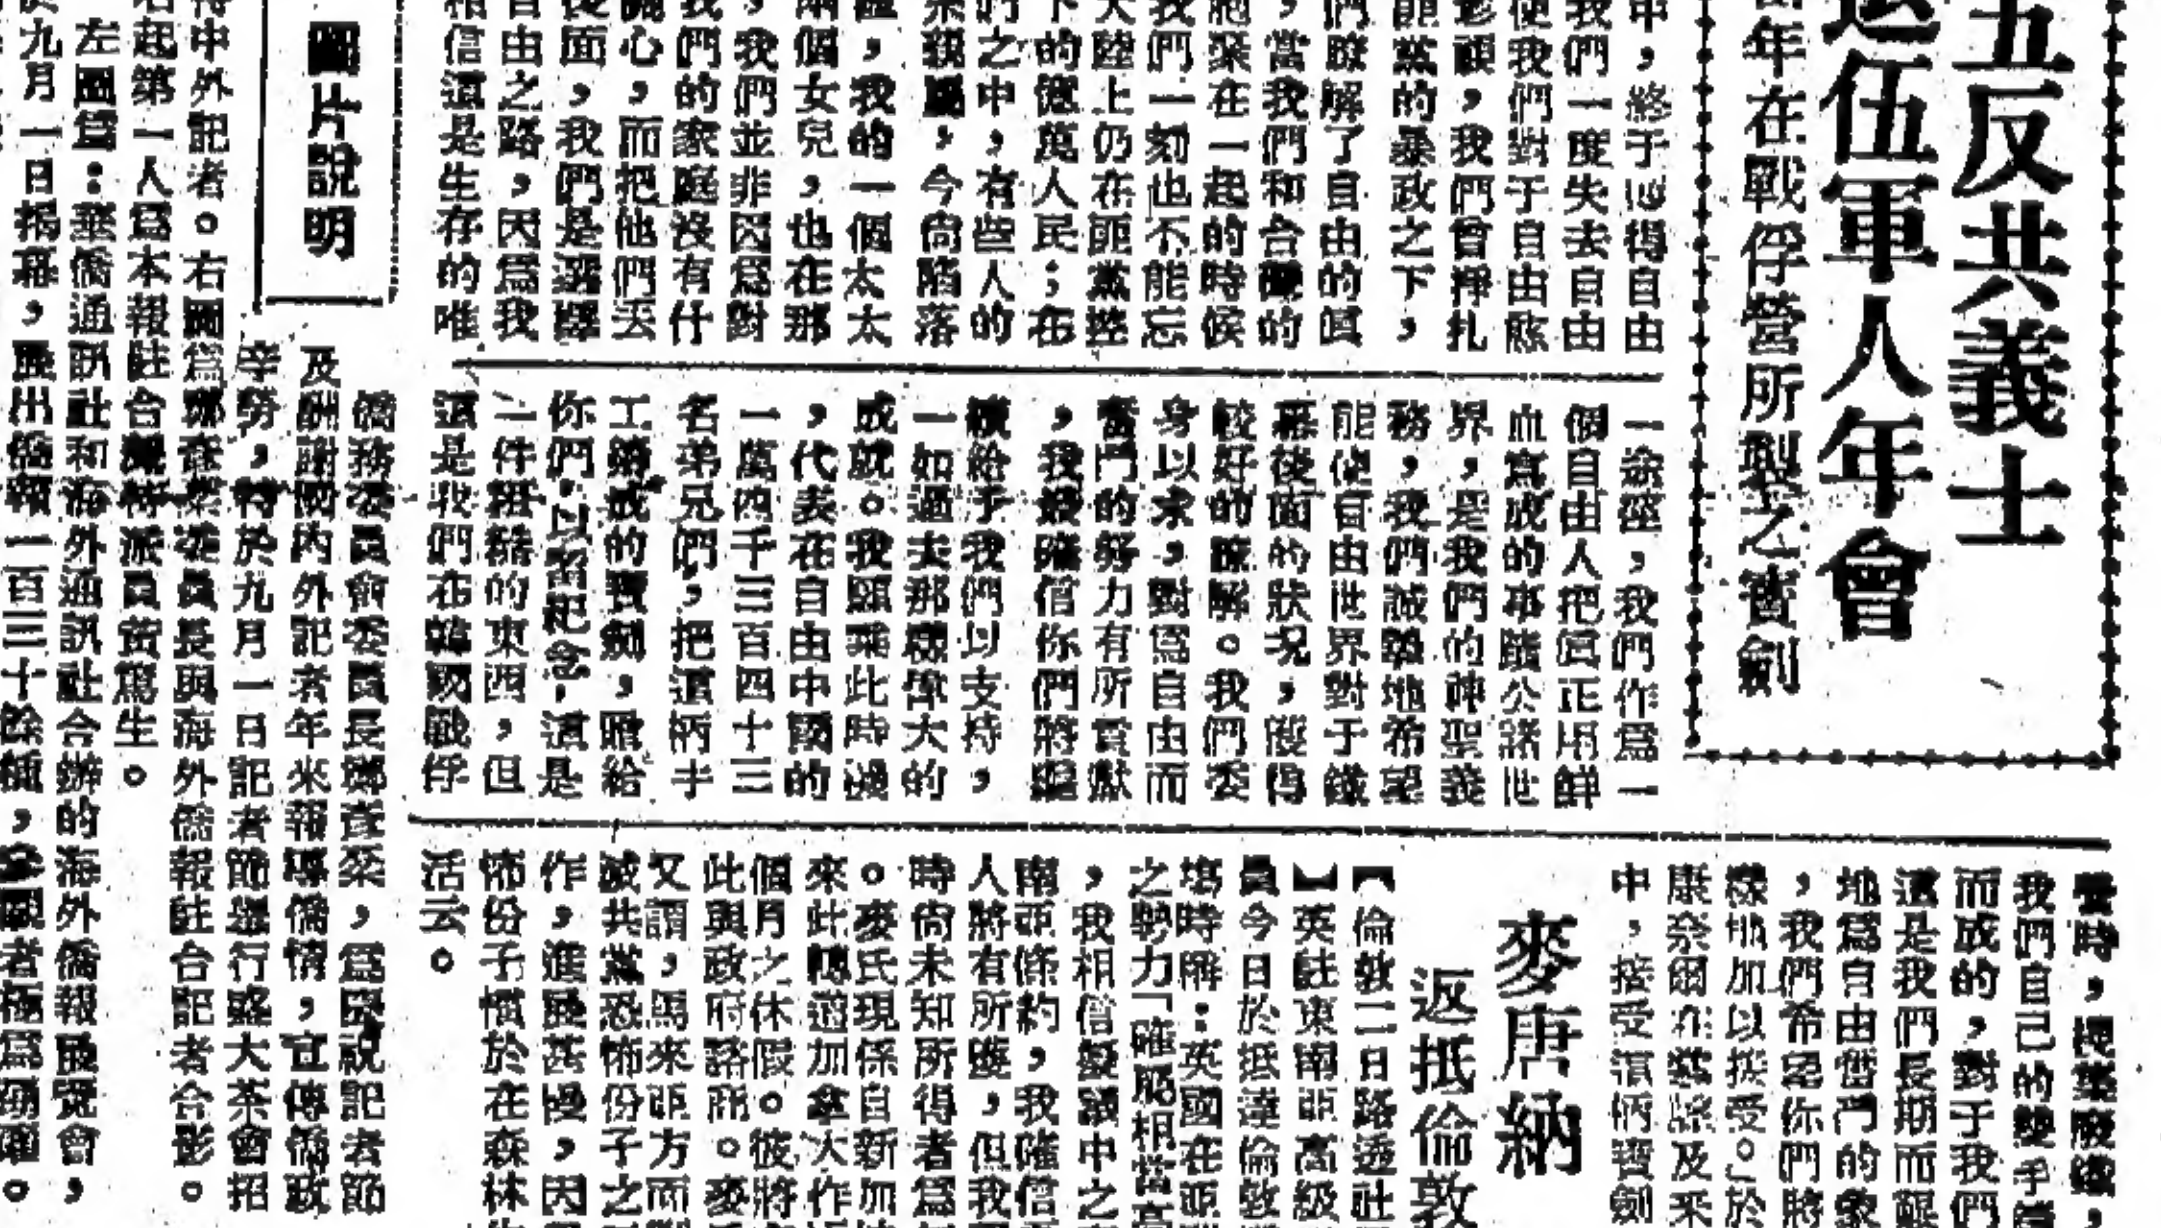 五反共義士
送伍軍人年會
年在戰俘營所製之寶劍
中，終于 得自由
我們一度失去自由
使我們對于自由
，我們曾掙扎
黨的暴政之下，
們瞭解了自由的眞
，當我們和合 的
胞聚在一起的時候
我們一刻也不能忘
大陸上仍在匪黨控
下的億萬人民；在
們之中，有些人的
親屬，今尙陷落
，我的一個太太
兩個女兒，也在那
，我們並非因爲對
我們的家庭沒有什
關心，而把他們丟
後面，我們是選擇
自由之路，因爲我
相信這是生存的唯
一途徑，我們作爲一
個自由人把眞正用鮮
血寫成的事蹟公諸世
界，是我們的神聖義
務，我們誠懇地希望
能使自由世界對于鐵
幕後面的狀況，獲得
較好的瞭解。我們委
身以求，對爲自由而
奮鬥的努力有所貢獻
，我最確信你們將繼
續給予我們以支持，
一如過去那樣偉大的
成就。我願乘此時機
，代表在自由中國的
一萬四千三百四十三
名弟兄們，把這柄手
工鑄成的寶劍，贈給
你們，以留紀念，這是
一件粗糙的東西，但
這是我們在韓國戰俘
營時，
我們自己的雙手
而成的，對于我們
這是我們長期而艱
地爲自由奮鬥的象
，我們希望你們將
樣地加以接受。」於
康奈爾 及釆
中，接受這柄寶劍
麥唐納
返抵倫敦
【倫敦二日路透社
】英駐東南亞高級
員今日於抵達倫敦
塲時稱：英國在亞
之勢力「確屬相當
，我相信 議中之
南亞條約，我確信
人將有所獲，但我
時尙未知所得者爲
。麥氏現係自新加
來此轉道加拿大作
個月之休假。彼將
此與政府 商。麥
又謂，馬來亞方面
滅共黨恐怖份子之
作，進展甚慢，因
怖份子慣於在森林
活云。
圖片說明
僑務委員會委員長鄭彥棻，爲慶祝記者節
及酬謝國內外記者年來報導僑情，宣傳僑政
辛勞，特於九月一日記者節舉行盛大茶會招
待中外記者。右圖爲鄭彥棻委員長與海外僑報駐台記者合影。
右起第一人爲本報駐台灣特派員黃篤生。
左圖爲：華僑通訊社和海外通訊社合辦的海外僑報展覽會，
於九月一日揭幕，展出僑報一百三十餘種，參觀者極爲踴躍。